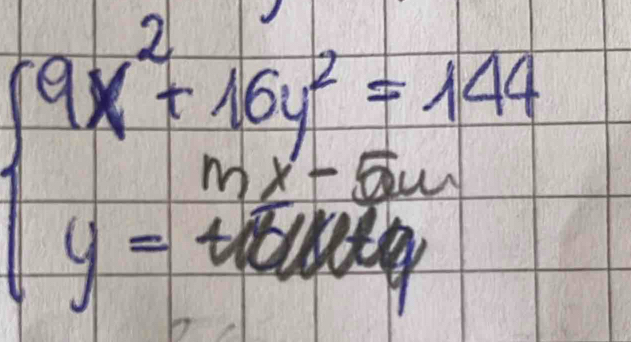 9x² + 16y² = 144
mx - 5m
y =